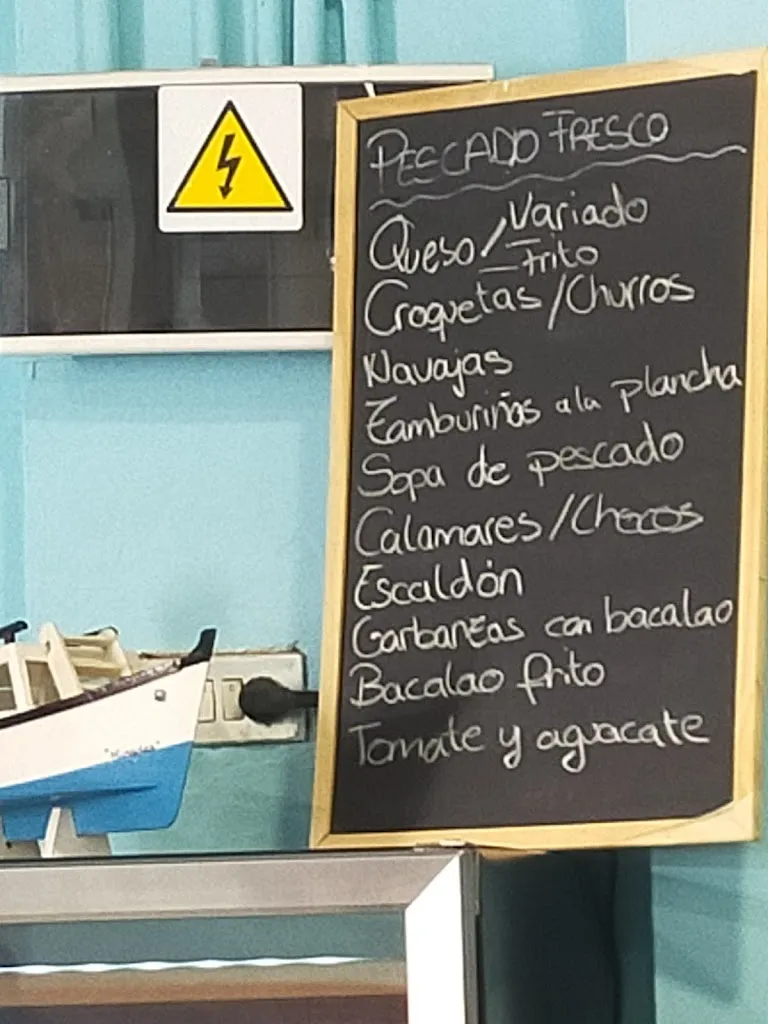 PESCADO FRESCO
Queso/Variado
Frito
Croquetas/Churros
Navajas
Zamburiñas a la plancha
Sopa de pescado
Calamares/Chocos
Escaldón
Garbanzas con bacalao
Bacalao frito
Tomate y aguacate